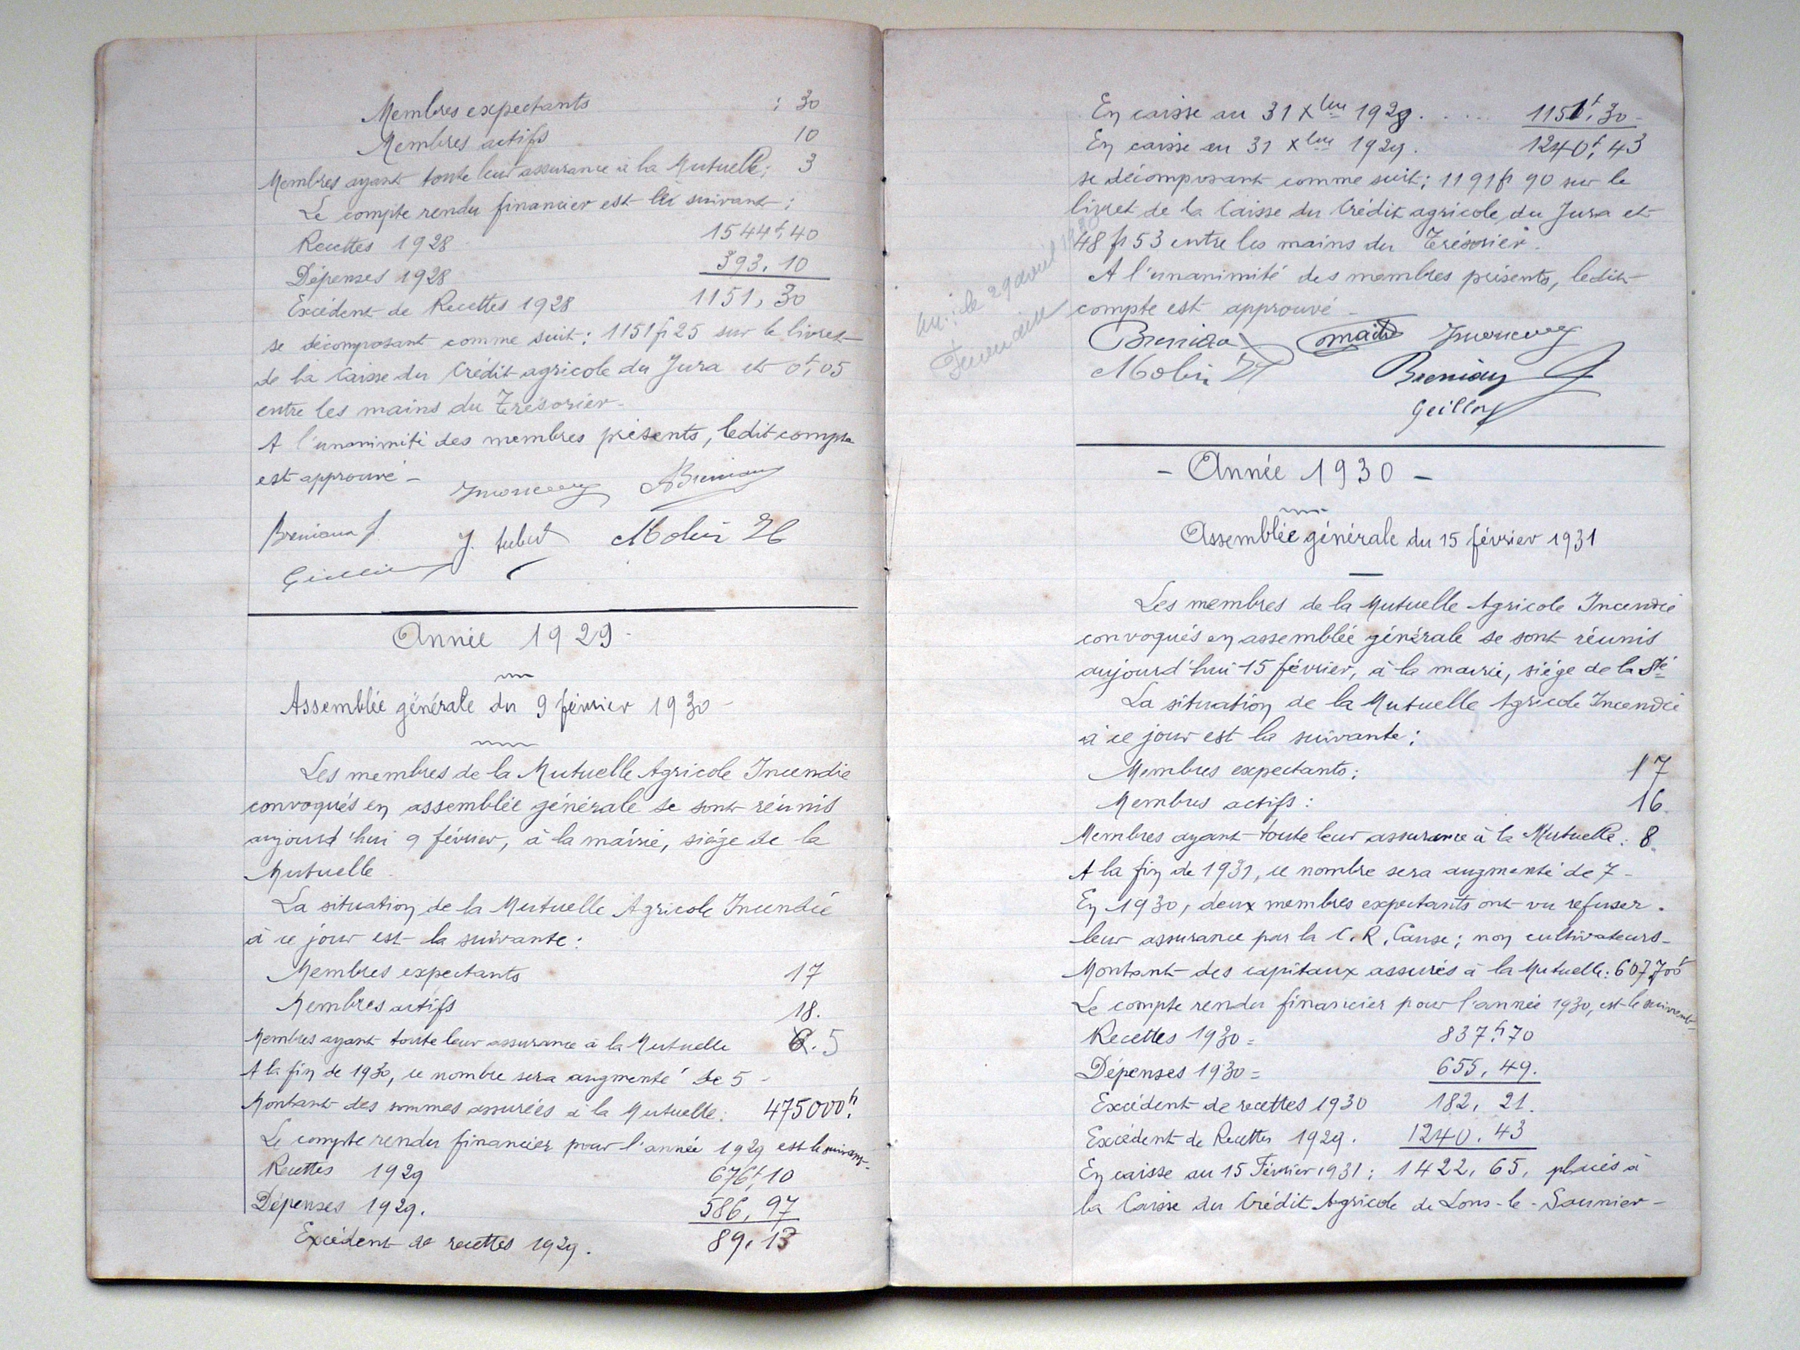 Membres expectants : 30
Membres actifs 10
Membres ayant toute leur assurance à la Mutuelle : 3
Le compte rendu financier est le suivant :
Recettes 1928 1544f,40
Dépenses 1928 393,10
Excédent de Recettes 1928 1151,30
se décomposant comme suit : 1151 fr 25 sur le livret
de la Caisse du Crédit agricole du Jura et 0f,05
entre les mains du Trésorier -
A l'unanimité des membres présents, ledit compte
est approuvé -
Année 1929 -
Assemblée générale du 9 février 1930 -
Les membres de la Mutuelle Agricole Incendie
convoqués en assemblée générale se sont réunis
aujourd'hui 9 février, à la mairie, siège de la
Mutuelle
La situation de la Mutuelle Agricole Incendie
à ce jour est la suivante :
Membres expectants 17
Membres actifs 18.
Membres ayant toute leur assurance à la Mutuelle 5
A la fin de 1930, ce nombre sera augmenté de 5 -
Montant des sommes assurées à la Mutuelle : 475000fr.
Le compte rendu financier pour l'année 1929 est le suivant -
Recettes 1929 676f,10
Dépenses 1929. 586,97
Excédent de recettes 1929. 89,13
En caisse au 31 Xbre 1928. . . . . 1151f,30 -
En caisse au 31 Xbre 1929. 1240f,43
se décomposant comme suit : 1191 fr 90 sur le
livret de la Caisse du Crédit agricole du Jura et
48 fr 53 entre les mains du Trésorier.
A l'unanimité des membres présents, ledit
compte est approuvé -
le 29 avril
Molin
Breniaux
- Année 1930 -
Assemblée générale du 15 février 1931
Les membres de la Mutuelle Agricole Incendie
convoqués en assemblée générale se sont réunis
aujourd'hui 15 février, à la mairie, siège de la Sté
La situation de la Mutuelle Agricole Incendie
à ce jour est la suivante :
Membres expectants : 17
Membres actifs : 16.
Membres ayant toute leur assurance à la Mutuelle : 8.
A la fin de 1931, ce nombre sera augmenté de 7 -
En 1930, deux membres expectants ont vu refuser
leur assurance par la C.R. Cause : non cultivateurs -
Montant des capitaux assurés à la Mutuelle : 607700f
Le compte rendu financier pour l'année 1930, est le suivant -
Recettes 1930 = 837fr70
Dépenses 1930 = 655,49.
Excédent de recettes 1930 182,21.
Excédent de Recettes 1929. 1240.43
En caisse au 15 Février 1931 : 1422,65, placés à
la Caisse du Crédit Agricole de Lons-le-Saunier -